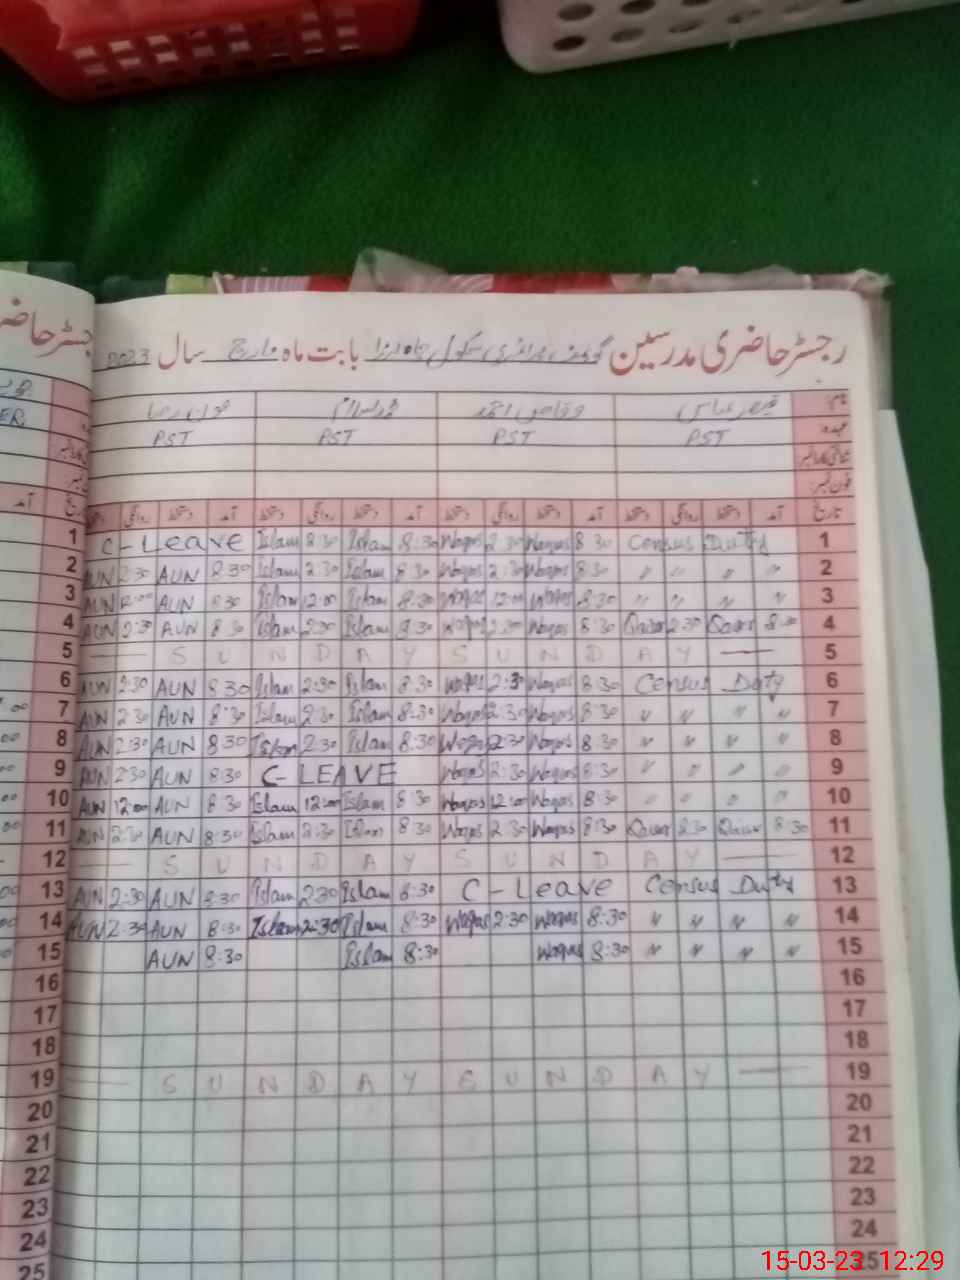 رجسٹر حاضری مدرسین گورنمنٹ پرائمری سکول بابت ماہ مارچ سال 2023
رجسٹر حاضری
نام: قیصر عباس وقاص احمد محمد اسلام عون رضا
عہدہ PST PST PST PST
شناختی کارڈ نمبر:
فون نمبر:
تاریخ آمد دستخط روانگی دستخط آمد دستخط روانگی دستخط آمد دستخط روانگی دستخط آمد دستخط روانگی دستخط تاریخ آمد
1 C-Leave Islam 2:30 Islam 8:30 Waqas 2:30 Waqas 8:30 Census Duty 1
2 AUN 2:30 AUN 8:30 Islam 2:30 Islam 8:30 Waqas 2:30 Waqas 8:30 " " " " 2
3 AUN 12:00 AUN 8:30 Islam 12:00 Islam 8:30 Waqas 12:00 Waqas 8:30 " " " " 3
4 AUN 2:30 AUN 8:30 Islam 2:30 Islam 8:30 Waqas 2:30 Waqas 8:30 Qaiser 2:30 Qaiser 8:30 4
5 — S U N D A Y S U N D A Y — 5
6 AUN 2:30 AUN 8:30 Islam 2:30 Islam 8:30 Waqas 2:30 Waqas 8:30 Census Duty 6
7 AUN 2:30 AUN 8:30 Islam 2:30 Islam 8:30 Waqas 2:30 Waqas 8:30 " " " " 7
8 AUN 2:30 AUN 8:30 Islam 2:30 Islam 8:30 Waqas 2:30 Waqas 8:30 " " " " 8
9 AUN 2:30 AUN 8:30 C-LEAVE Waqas 2:30 Waqas 8:30 " " " " 9
10 AUN 12:00 AUN 8:30 Islam 12:00 Islam 8:30 Waqas 12:00 Waqas 8:30 " " " " 10
11 AUN 2:30 AUN 8:30 Islam 2:30 Islam 8:30 Waqas 2:30 Waqas 8:30 Qaiser 2:30 Qaiser 8:30 11
12 — S U N D A Y S U N D A Y — 12
13 AUN 2:30 AUN 8:30 Islam 2:30 Islam 8:30 C-Leave Census Duty 13
14 AUN 2:30 AUN 8:30 Islam 2:30 Islam 8:30 Waqas 2:30 Waqas 8:30 " " " " 14
15 AUN 8:30 Islam 8:30 Waqas 8:30 " " " " 15
16 16
17 17
18 18
19 — S U N D A Y S U N D A Y — 19
20 20
21 21
22 22
23 23
24 24
25 25
15-03-23 12:29